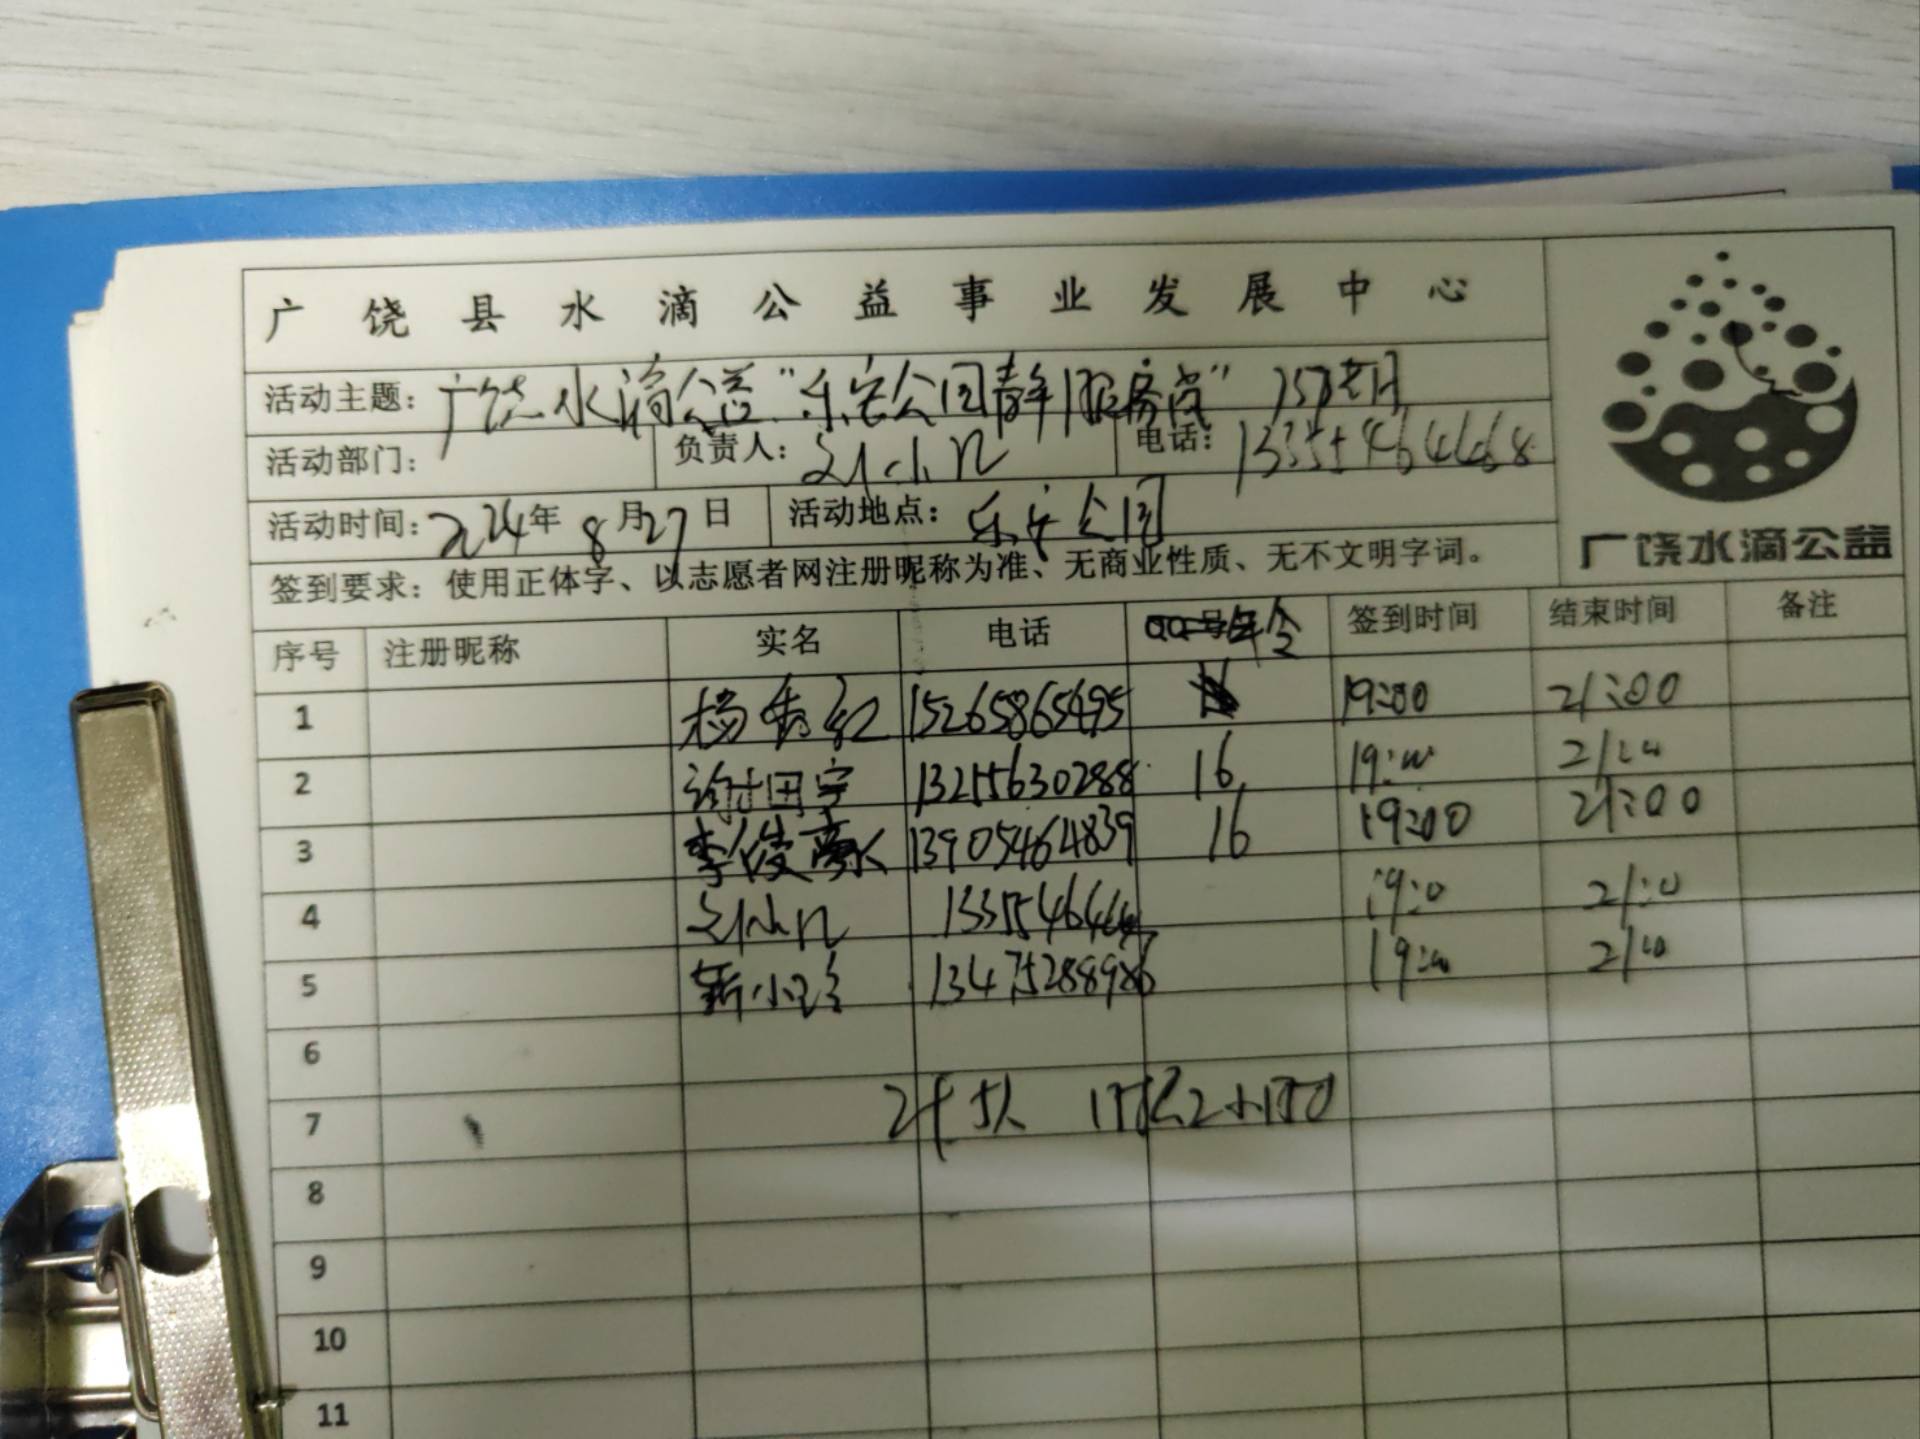 广饶县水滴公益事业发展中心
活动主题：广饶水滴公益“乐安公园青年服务岗”
活动部门： 负责人： 电话：
活动时间：2024年8月27日 活动地点：乐安公园
广饶水滴公益
签到要求：使用正体字、以志愿者网注册昵称为准、无商业性质、无不文明字词。
序号 注册昵称 实名 电话 年令 签到时间 结束时间 备注
1 杨秀红 15265865495 19:00 21:00
2 田宇 13255630288 16 19:00 21:00
3 李俊豪 13905464839 16 19:00 21:00
4 19:0 21:0
5 靳小 13475288986 19:00 21:00
6
7 2小时
8
9
10
11